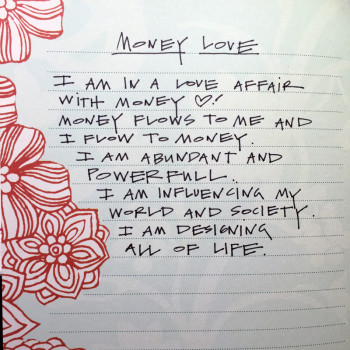 MONEY LOVE
I AM IN A LOVE AFFAIR
WITH MONEY ♡!
MONEY FLOWS TO ME AND
I FLOW TO MONEY.
I AM ABUNDANT AND
POWERFULL.
I AM INFLUENCING MY
WORLD AND SOCIETY.
I AM DESIGNING
ALL OF LIFE.